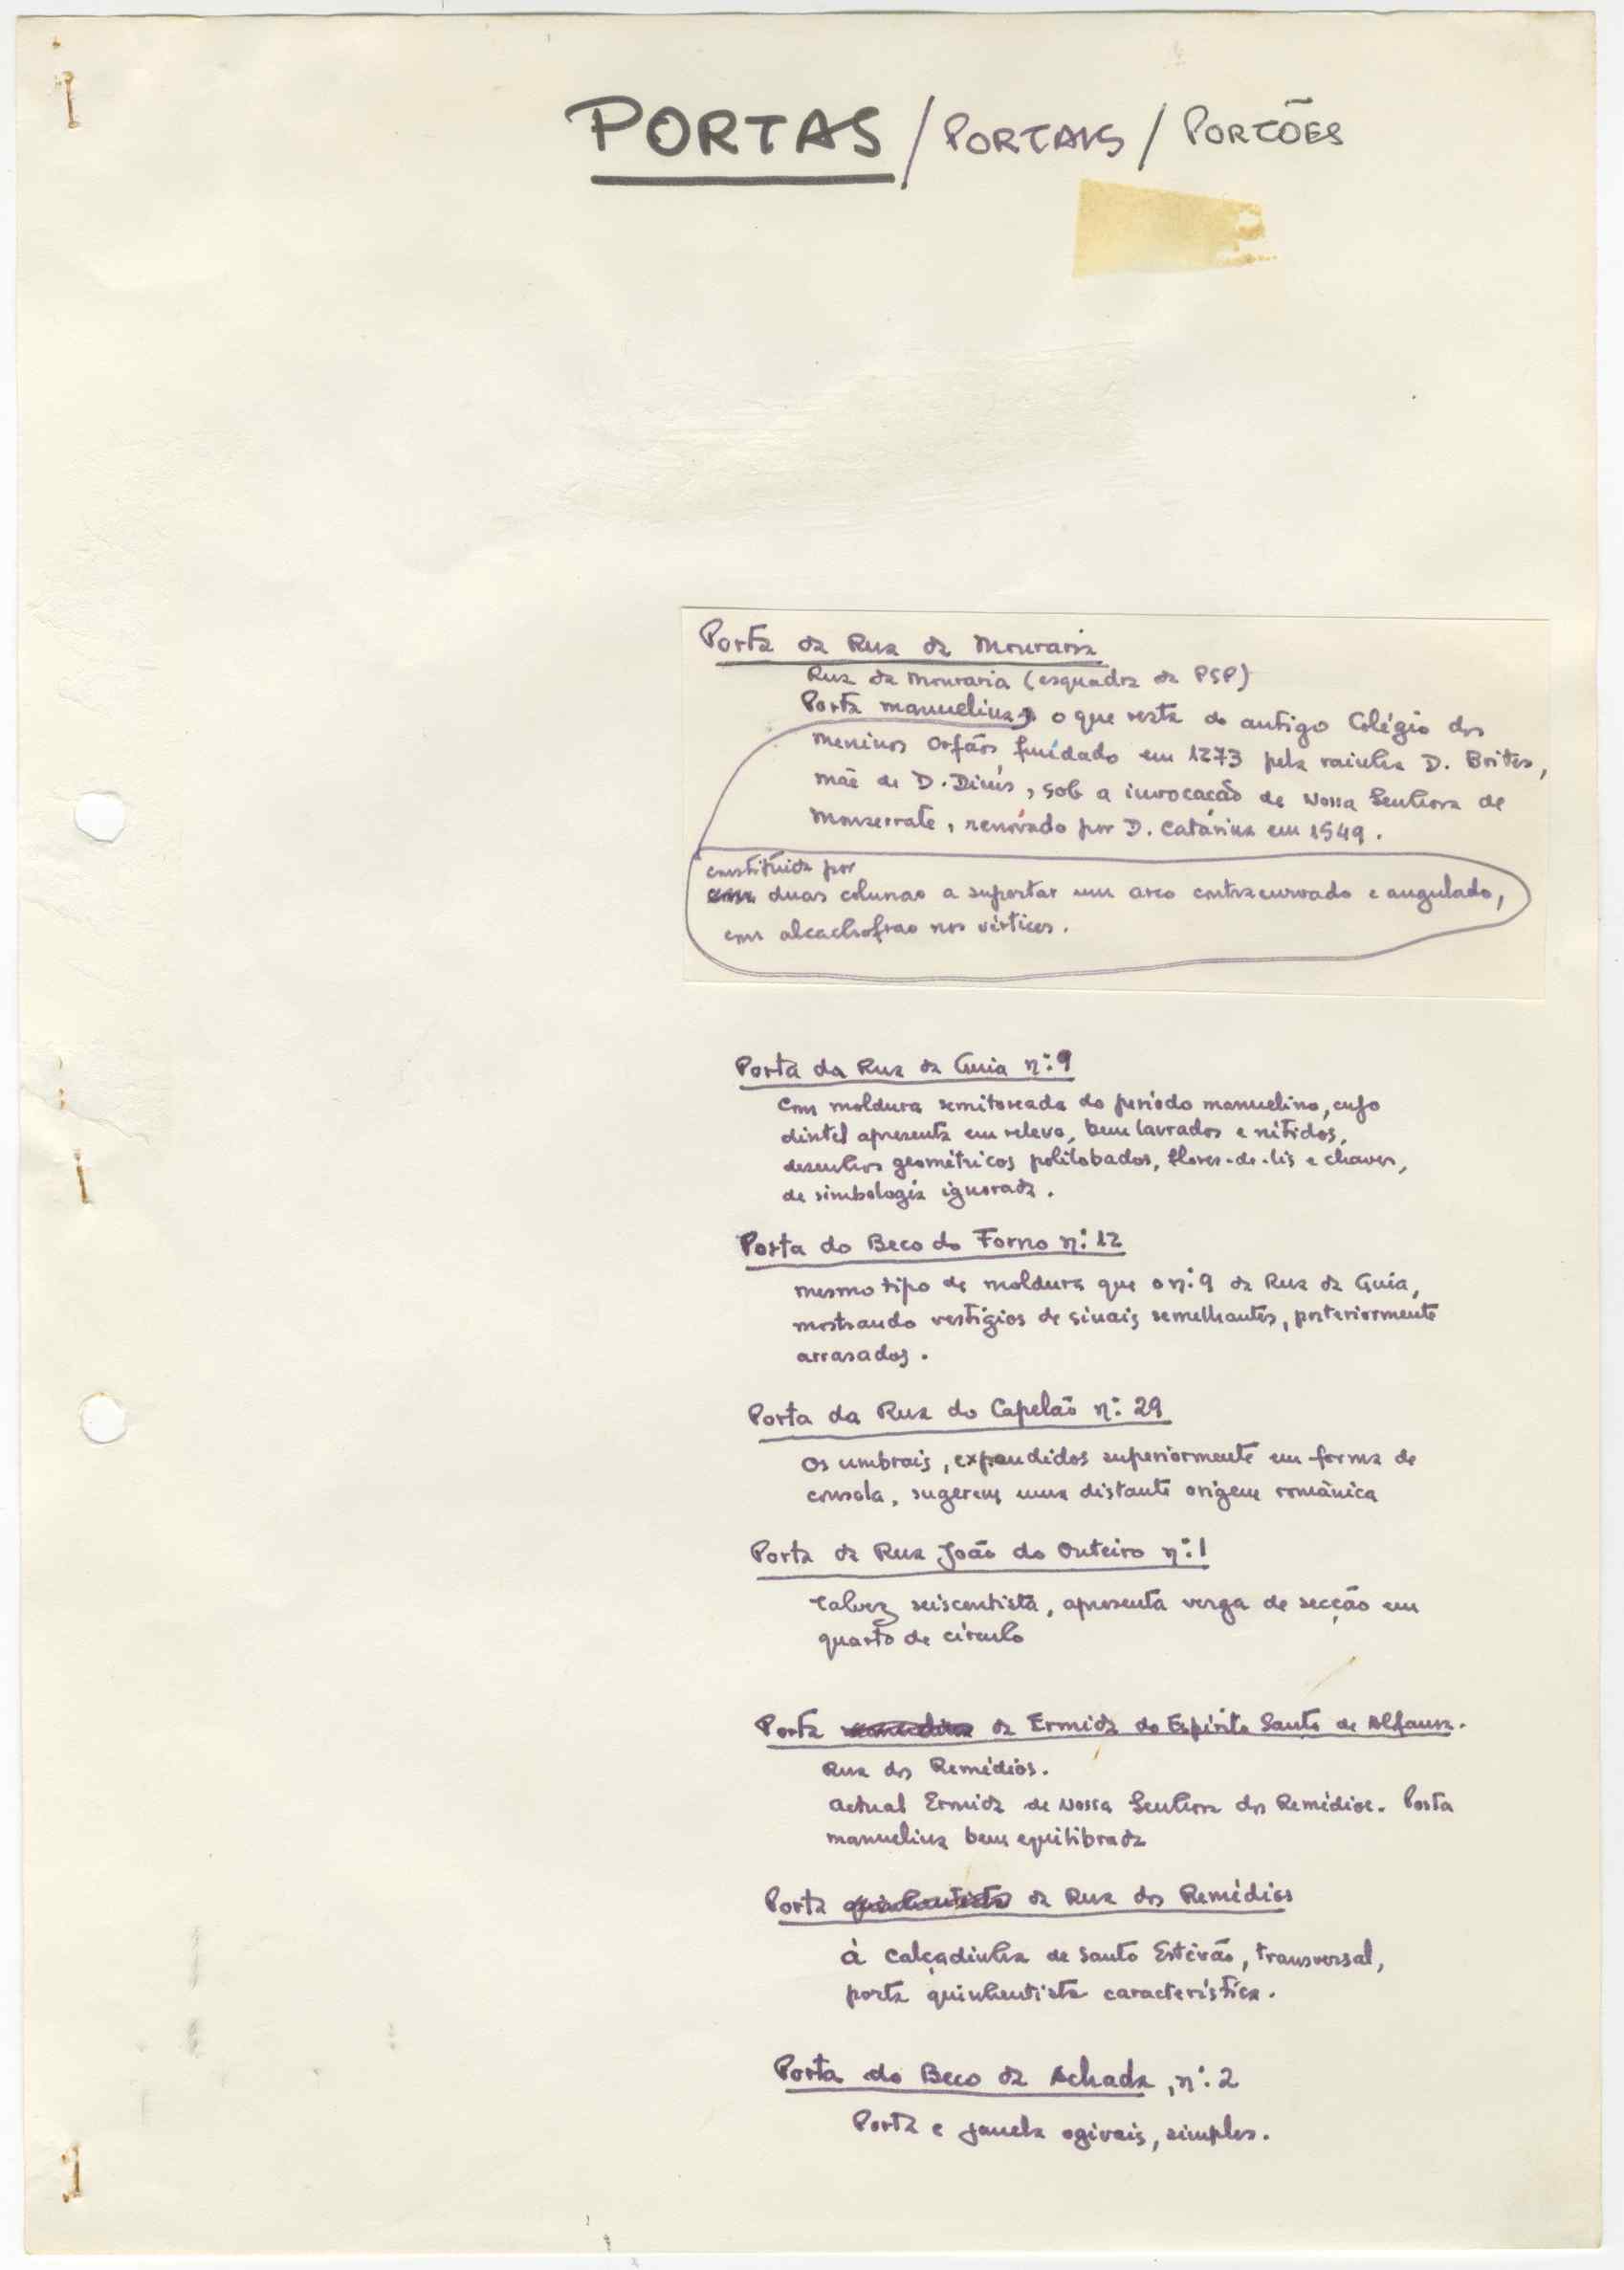 PORTAS / PORTAIS / PORTÕES
Porta da Rua da Mouraria
Rua da Mouraria (esquadra da PSP)
Porta manuelina, o que resta do antigo Colégio dos
Meninos Orfãos, fundado em 1273 pela rainha D. Brites,
mãe de D. Dinis, sob a invocação de Nossa Senhora de
Monserrate, renovado por D. Catarina em 1549.
constituída por
com duas colunas a suportar um arco contracurvado e angulado,
com alcachofras nos vértices.
Porta da Rua da Guia n.º 9
Com moldura semitoreada do período manuelino, cujo
dintel apresenta em relevo, bem lavrados e nítidos,
desenhos geométricos polilobados, flores-de-lis e chaves,
de simbologia ignorada.
Porta do Beco do Forno n.º 12
mesmo tipo de moldura que o n.º 9 da Rua da Guia,
mostrando vestígios de sinais semelhantes, posteriormente
arrasados.
Porta da Rua do Capelão n.º 29
Os umbrais, expandidos superiormente em forma de
consola, sugerem uma distante origem românica
Porta da Rua João do Outeiro n.º 1
Talvez seiscentista, apresenta verga de secção em
quarto de círculo
Porta manuelina da Ermida do Espírito Santo de Alfama.
Rua dos Remédios.
Actual Ermida de Nossa Senhora dos Remédios. Porta
manuelina bem equilibrada
Porta quinhentista da Rua dos Remédios
À Calçadinha de Santo Estêvão, transversal,
porta quinhentista característica.
Porta do Beco da Achada, n.º 2
Porta e janela ogivais, simples.